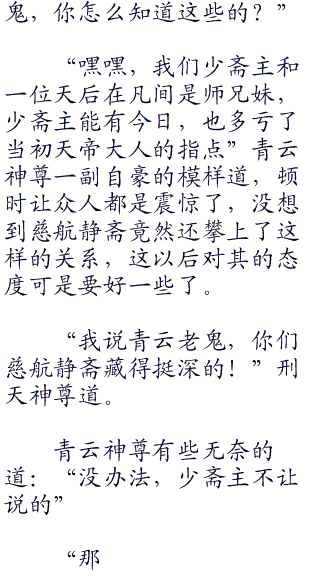 鬼，你怎么知道这些的？”
“嘿嘿，我们少斋主和
一位天后在凡间是师兄妹，
少斋主能有今日，也多亏了
当初天帝大人的指点”青云
神尊一副自豪的模样道，顿
时让众人都是震惊了，没想
到慈航静斋竟然还攀上了这
样的关系，这以后对其的态
度可是要好一些了。
“我说青云老鬼，你们
慈航静斋藏得挺深的！”刑
天神尊道。
青云神尊有些无奈的
道：“没办法，少斋主不让
说的”
“那